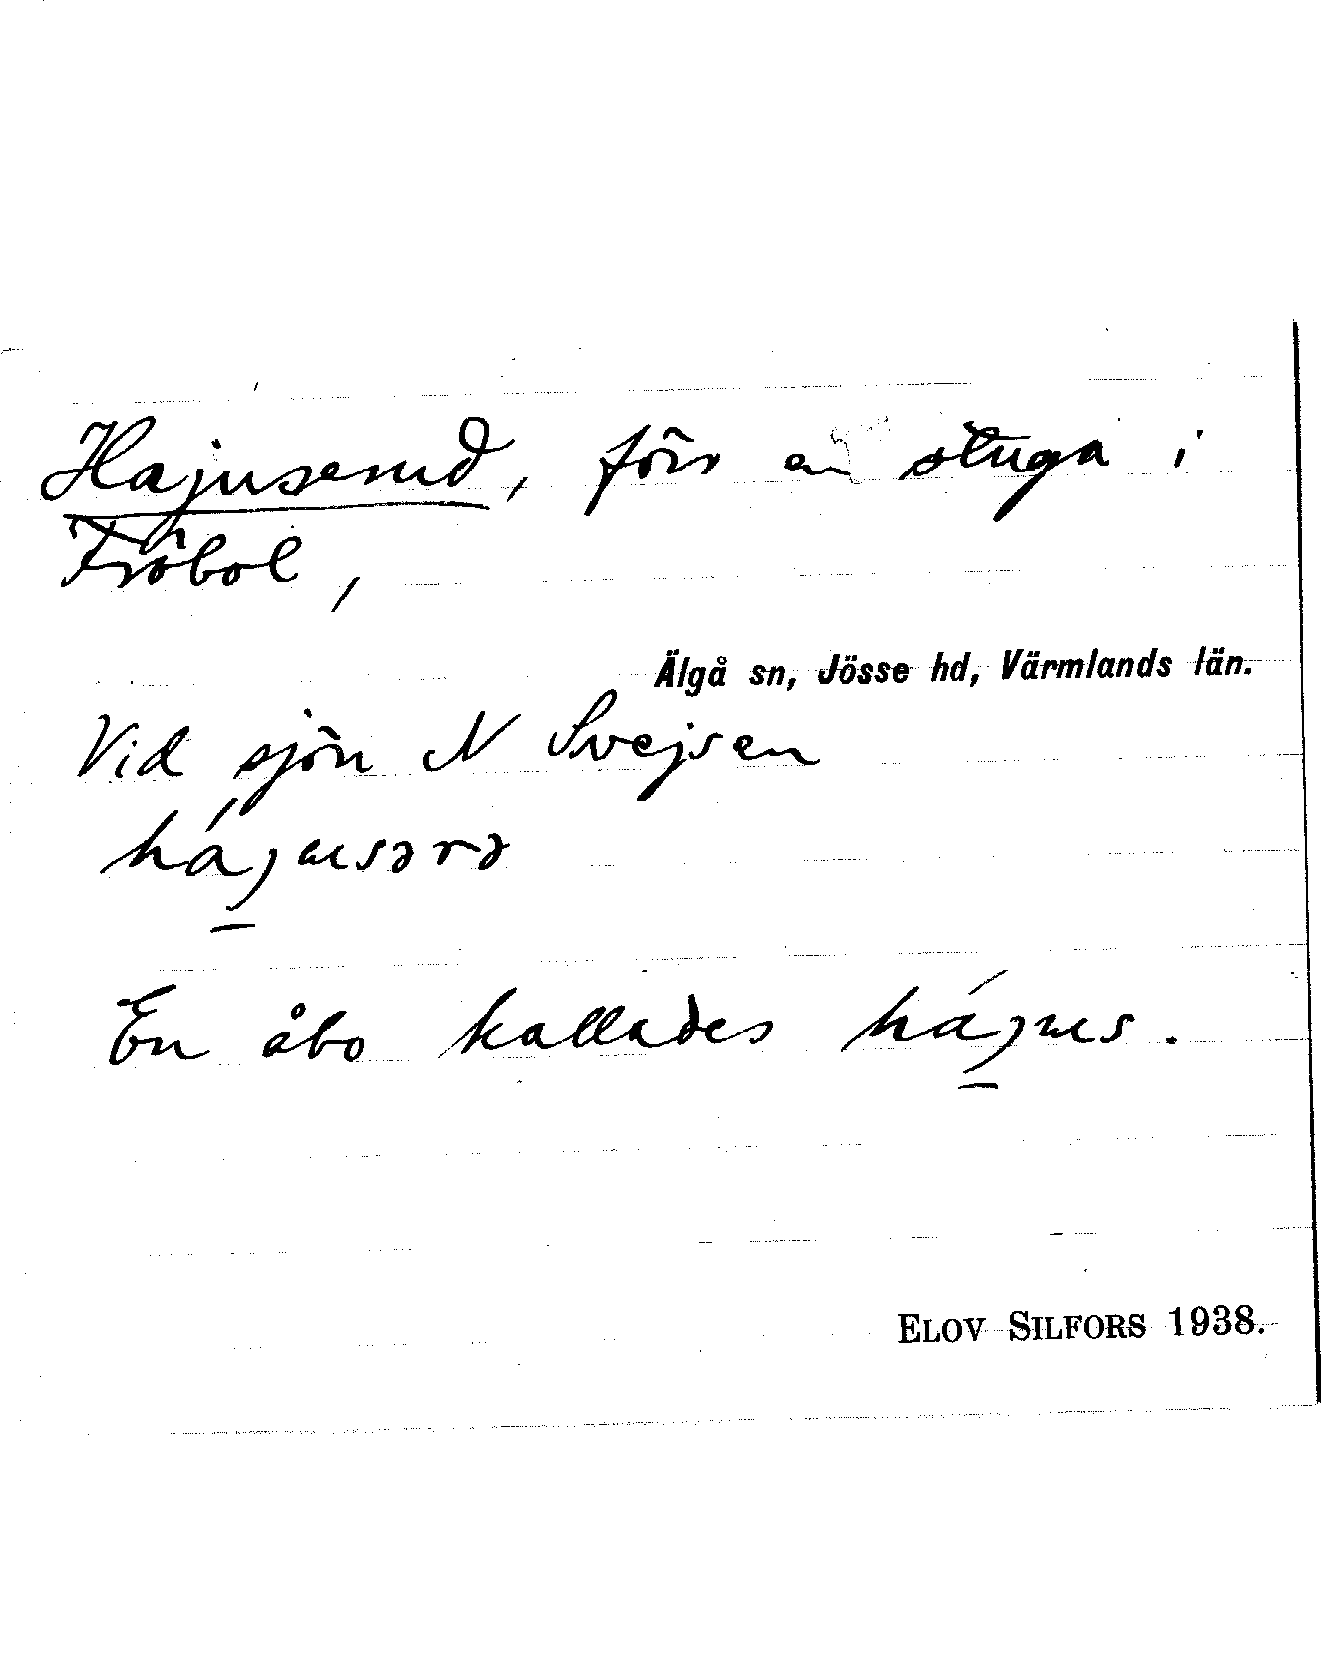 Hajuserud, förr en stuga i
Fröbol,
Älgå sn, Jösse hd, Värmlands län.
Vid sjön N Svejsen
hájusərə
En åbo kallades hájus.
ELOV SILFORS 1938.